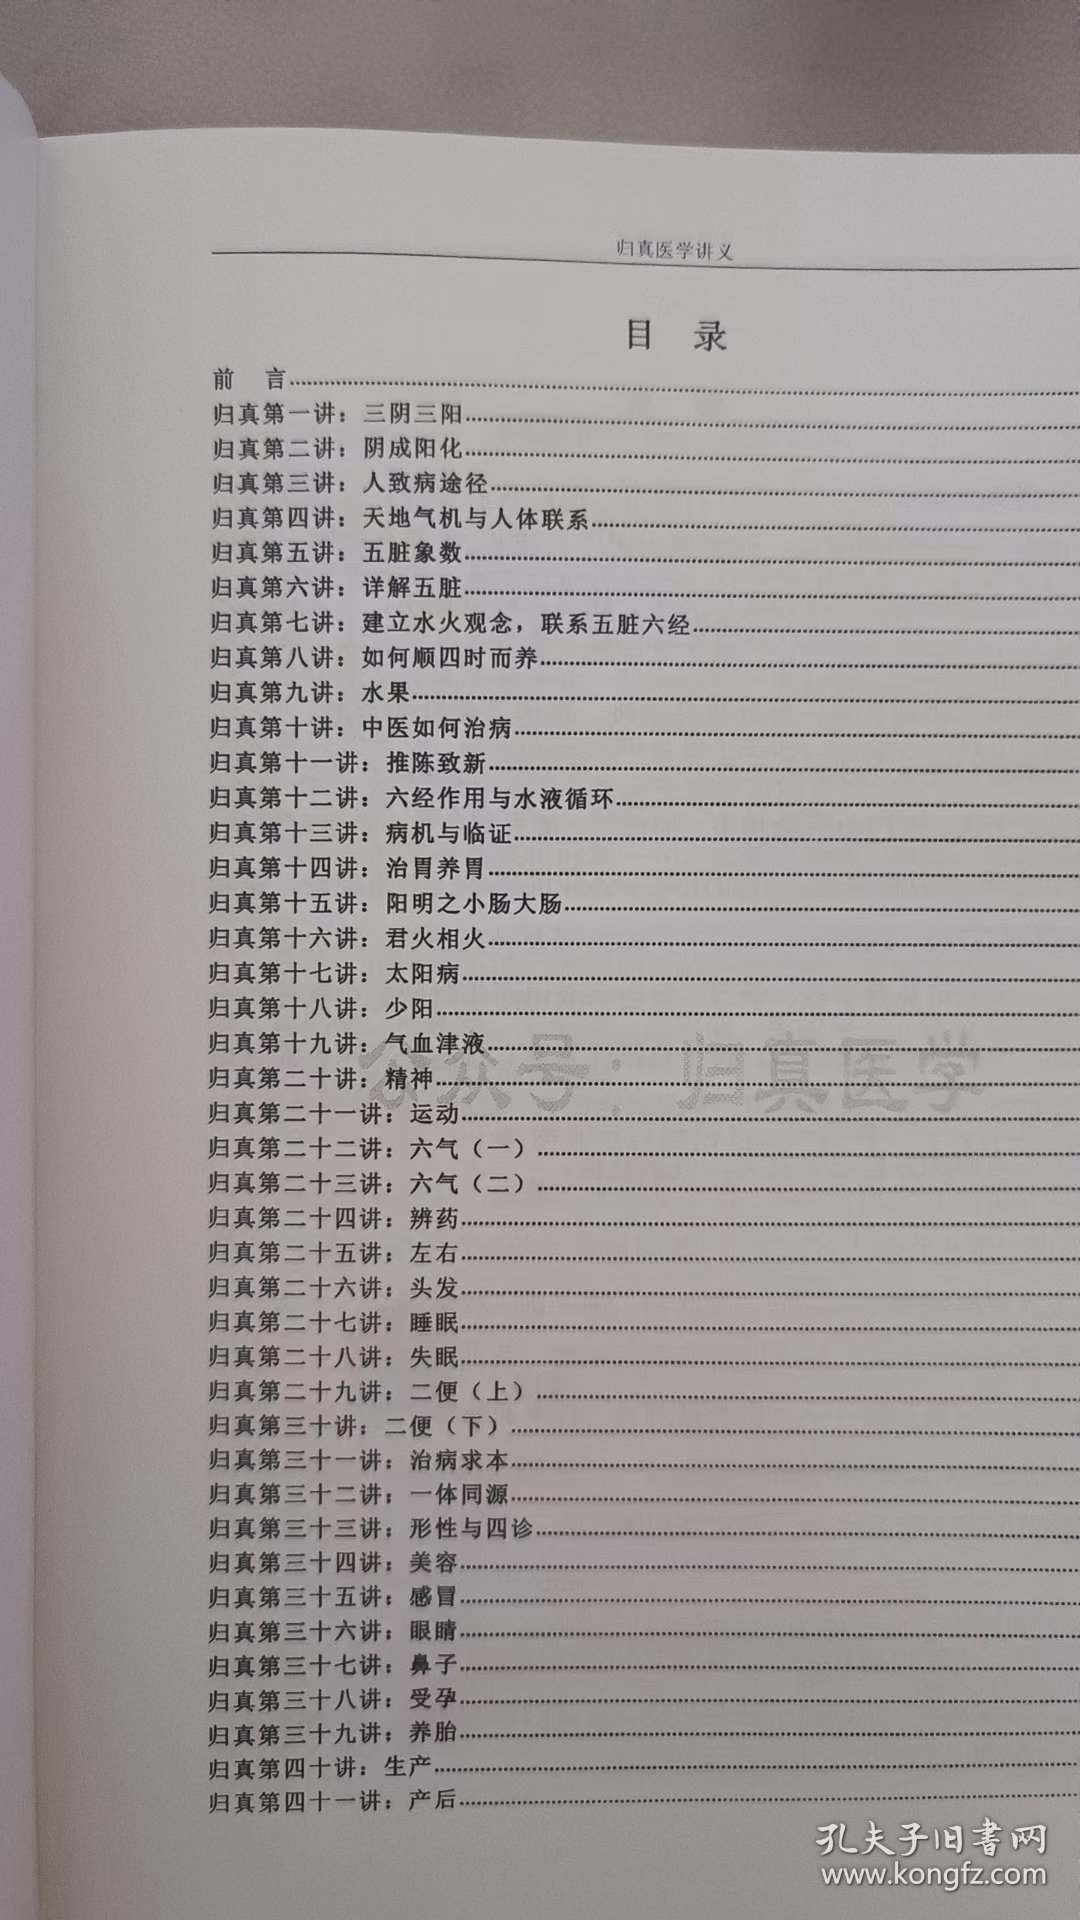 归真医学讲义
目 录
前 言
归真第一讲：三阴三阳
归真第二讲：阴成阳化
归真第三讲：人致病途径
归真第四讲：天地气机与人体联系
归真第五讲：五脏象数
归真第六讲：详解五脏
归真第七讲：建立水火观念，联系五脏六经
归真第八讲：如何顺四时而养
归真第九讲：水果
归真第十讲：中医如何治病
归真第十一讲：推陈致新
归真第十二讲：六经作用与水液循环
归真第十三讲：病机与临证
归真第十四讲：治胃养胃
归真第十五讲：阳明之小肠大肠
归真第十六讲：君火相火
归真第十七讲：太阳病
归真第十八讲：少阳
归真第十九讲：气血津液
公众号：归真医学
归真第二十讲：精神
归真第二十一讲：运动
归真第二十二讲：六气（一）
归真第二十三讲：六气（二）
归真第二十四讲：辨药
归真第二十五讲：左右
归真第二十六讲：头发
归真第二十七讲：睡眠
归真第二十八讲：失眠
归真第二十九讲：二便（上）
归真第三十讲：二便（下）
归真第三十一讲：治病求本
归真第三十二讲：一体同源
归真第三十三讲：形性与四诊
归真第三十四讲：美容
归真第三十五讲：感冒
归真第三十六讲：眼睛
归真第三十七讲：鼻子
归真第三十八讲：受孕
归真第三十九讲：养胎
归真第四十讲：生产
归真第四十一讲：产后
孔夫子旧书网
www.kongfz.com